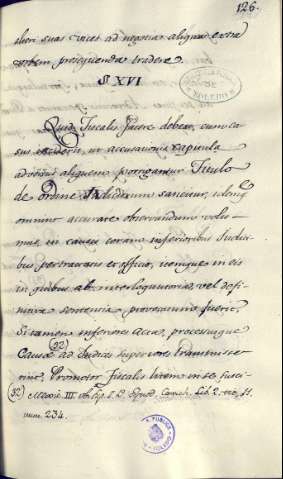 126.
alteri suas vices ad negotia aliqua extra
urbem prosequenda tradere.
§ XVI
Quid Fiscalis facere debeat, cum ca
sus inciderit, ut accusationis capitula
adversus aliquem porrigantur Titulo
de ordine Judiciorum sancitur, idemq
omnino accurate observandum volu-
mus, in causis coram inferioribus Judici-
bus pertractatis ex officio, itemque in eis
in quibus ab interloquutoria, vel defi-
nitiva sententia provocatum fuerit,
si tamen inferiores Acta, processusque
Causæ ad Judices superiores transmisse-
rint. (92) Promotor Fiscalis litem in se susci-
(92) III. Lib. 2.
num. 234.
TOLEDO